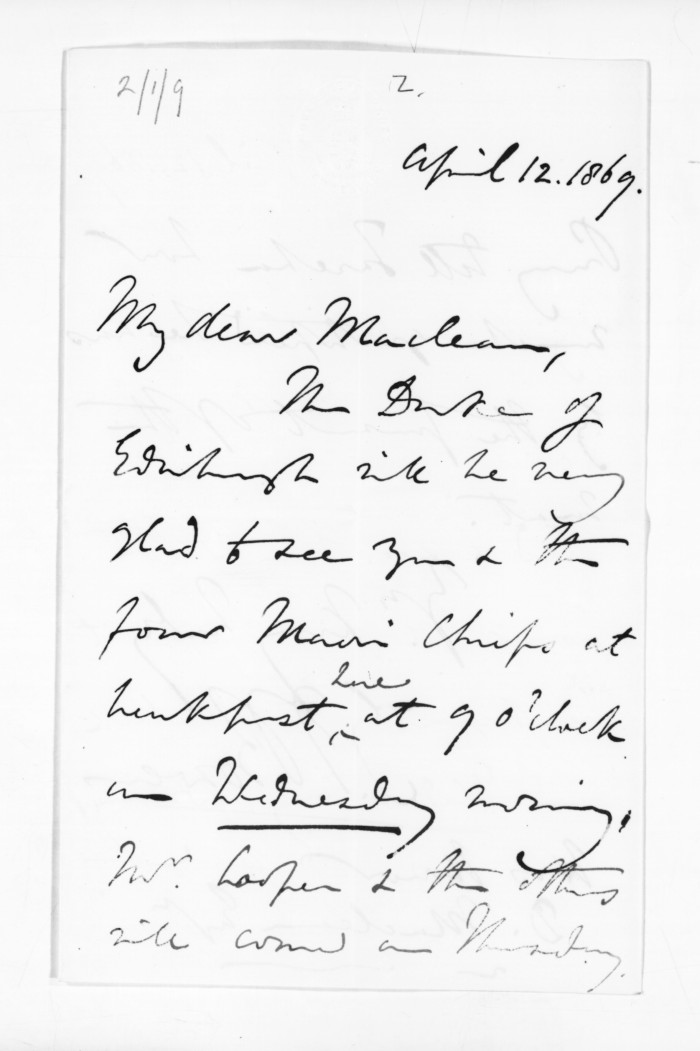 2/1/9
2.
April 12. 1869.
My dear Maclean,
The Duke of
Edinburgh will be very
glad to see you & the
four Maori Chiefs at
breakfast, here at 9 o'clock
on Wednesday morning.
Mr. Cooper & the others
will come on Thursday.